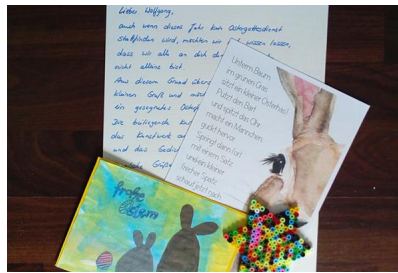 Lieber Wolfgang,
auch wenn dieses Jahr kein Ostergottesdienst
stattfinden wird, möchten wir dich wissen lassen,
dass wir alle an dich den
nicht alleine bist.
Aus diesem Grund übers
kleinen Gruß und möc
ein gesegnetes Osterf
Die beiliegende Kar
das Kunstwerk a
und das Gedic
Grüße
Unterm Baum
im grünen Gras
sitzt ein kleiner Osterhas!
Putzt den Bart
und spitzt das Ohr
macht ein Männchen,
guckt hervor.
Springt dann fort
mit einem Satz
und ein kleiner
frecher Spatz
schaut jetzt nach
Frohe
Ostern